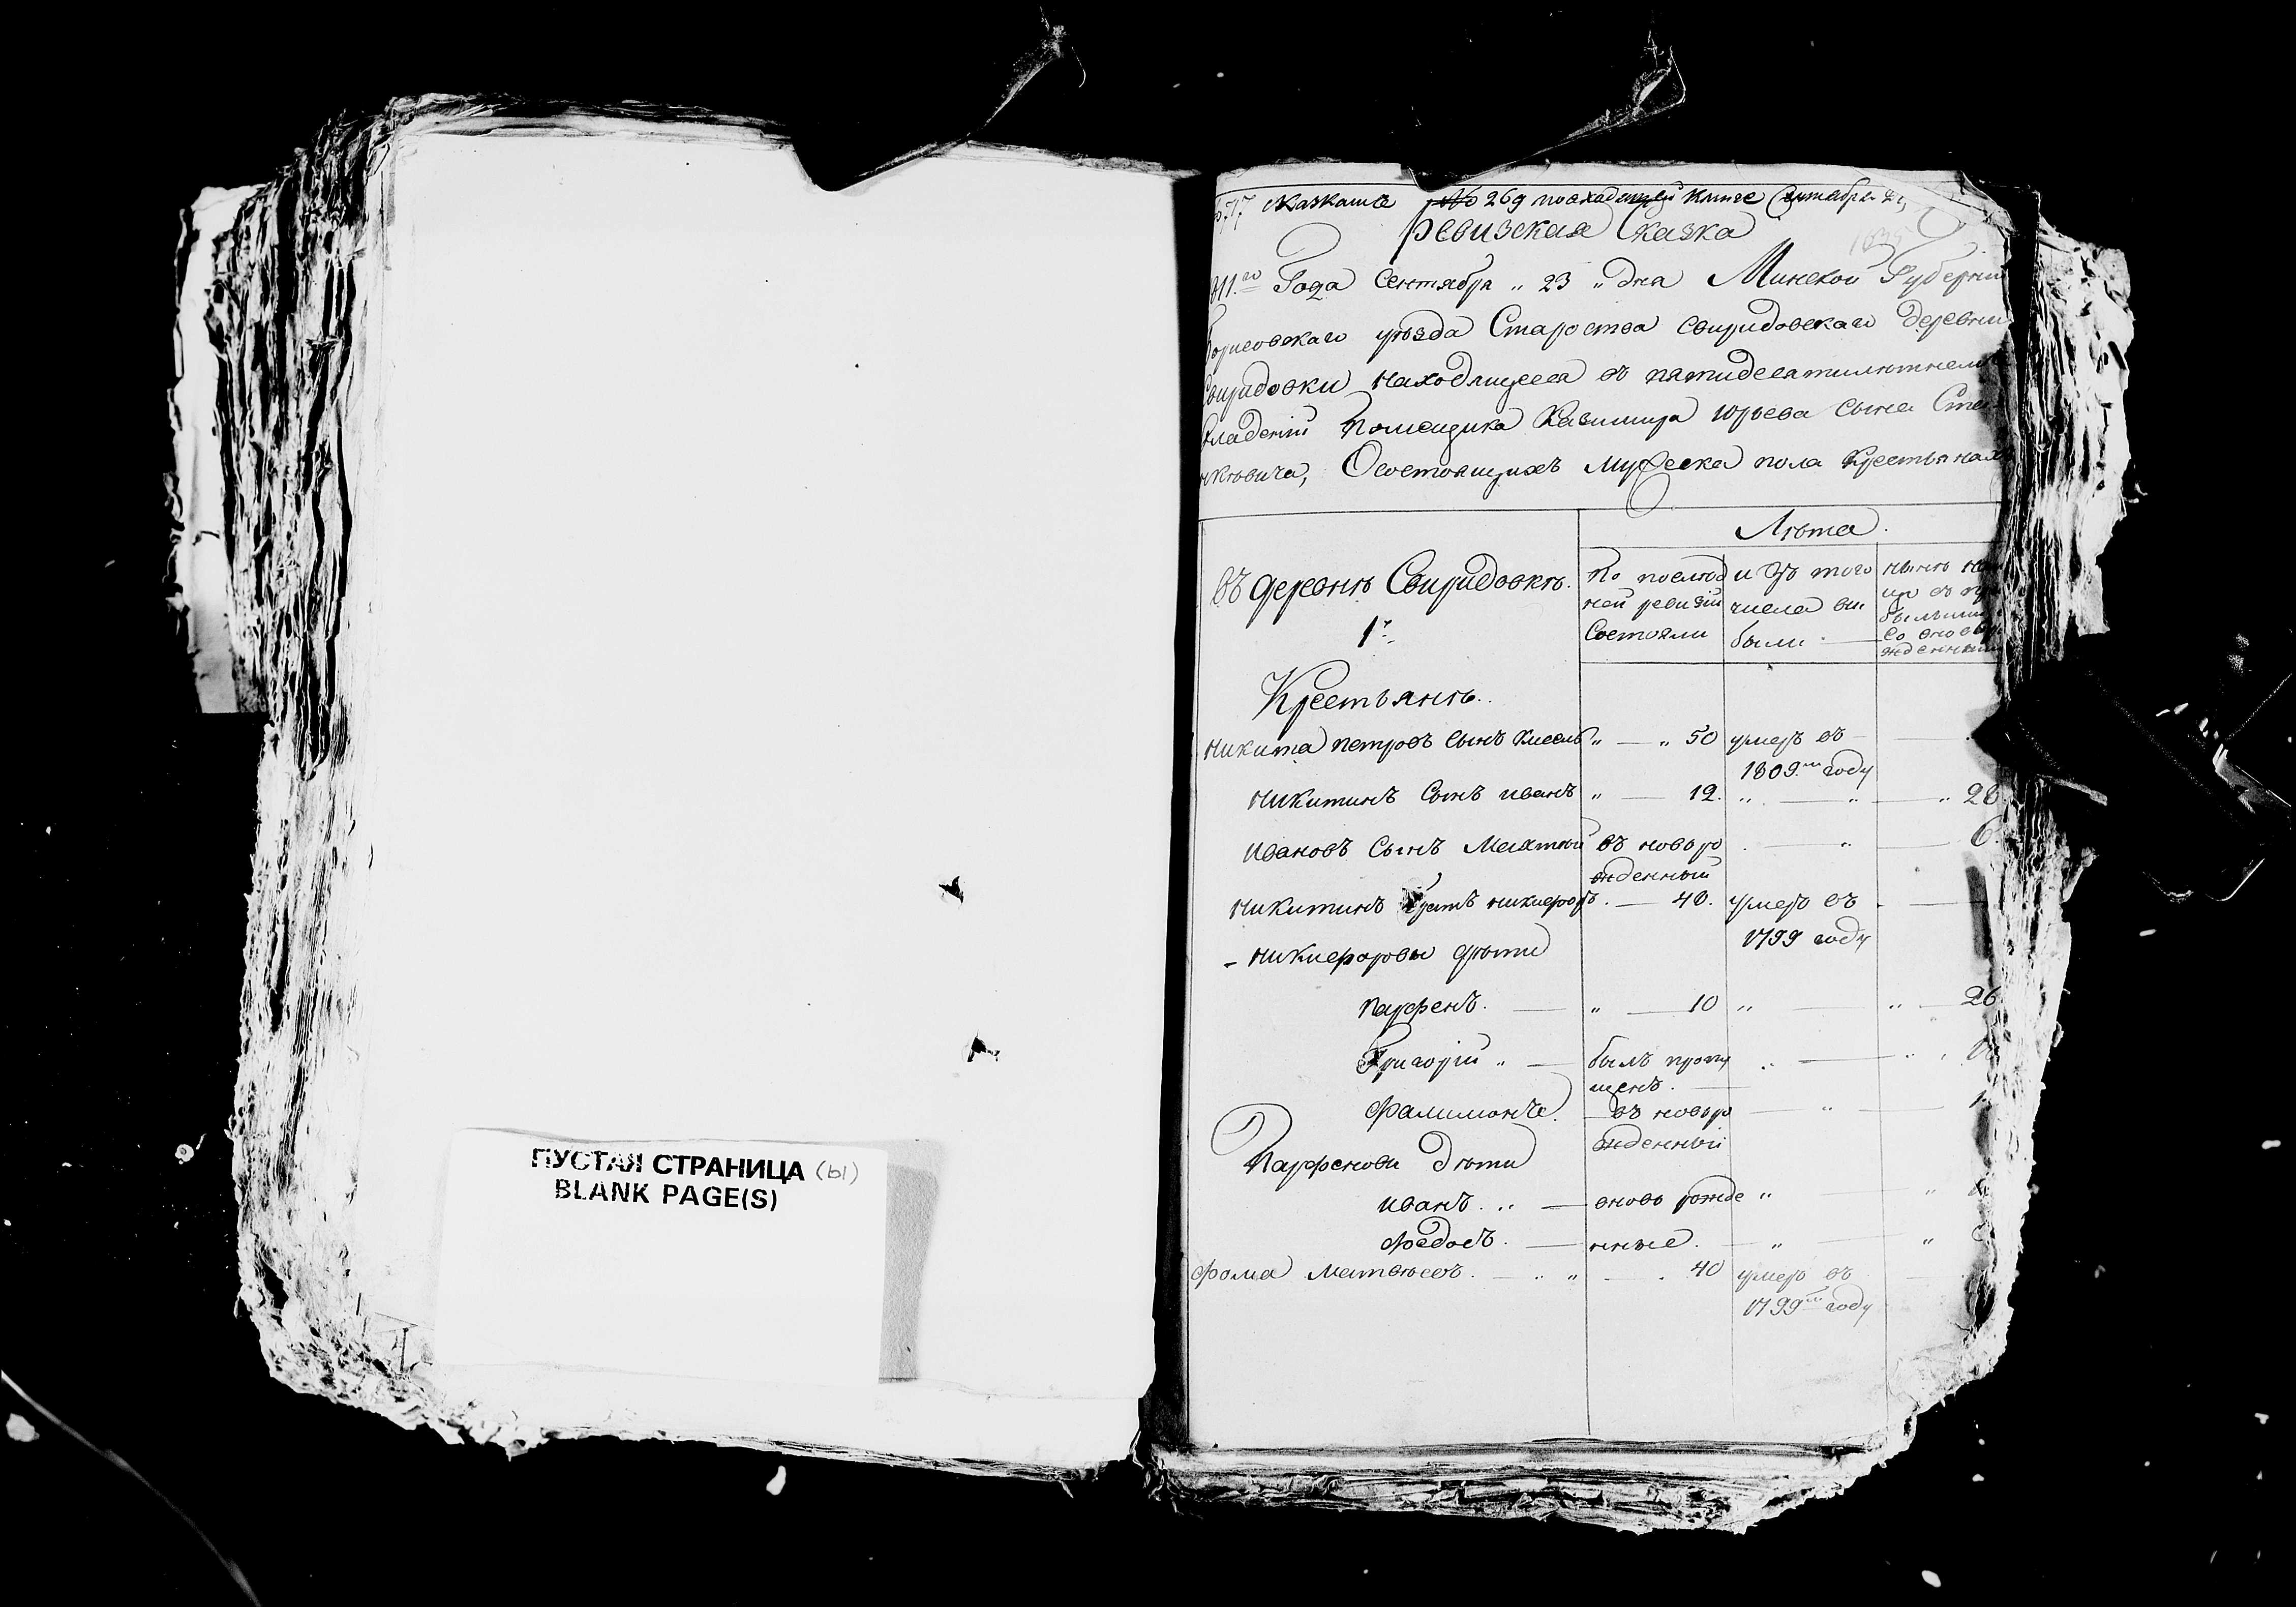 ПУСТАЯ СТРАНИЦА (ы)
BLANK PAGE(S)
№ 269 по входящей книге Сентября
Ревизская Сказка
Года Сентября „ 23 „ дня Минской Губернии
Борисовскаго уѣзда Староства Свиридовскаго деревни
Свиридовки находящееся въ пятидесятилѣтнемъ
владении Помещика Казимира Юрьева сына
О состоящихъ мужеска пола Крестьянахъ
Лѣта.
въ деревнѣ Свиридовкѣ.
1я
По послѣд
ней ревизіи
Состояли
изъ того
числа вы
были
нынѣ
Крестьянѣ.
Никита Петровъ Сынъ Кисель „ — „ 50 умеръ въ
1809.м году
Никитинъ Сынъ Иванъ „ — 12. „ — „ — „ 28
Ивановъ Сынъ Матвѣй въ новоро — „ — 6.
жденный
Никитинъ братъ Никифоръ. — 40. умеръ въ
1799 году
- Никифоровы дѣти
Парфенъ. — „ — 10 „ — „ — 26
Григорій „ — былъ пропу „ —
щенъ. —
Филимонъ. въ новоро — „ —
жденный
Парфеновы Дѣти
Иванъ. „ — вновь рожде „ — „
Федосъ. — нные. — „ — „
Фома Матвѣевъ. — „ „ — . 40 умеръ въ
1799м году